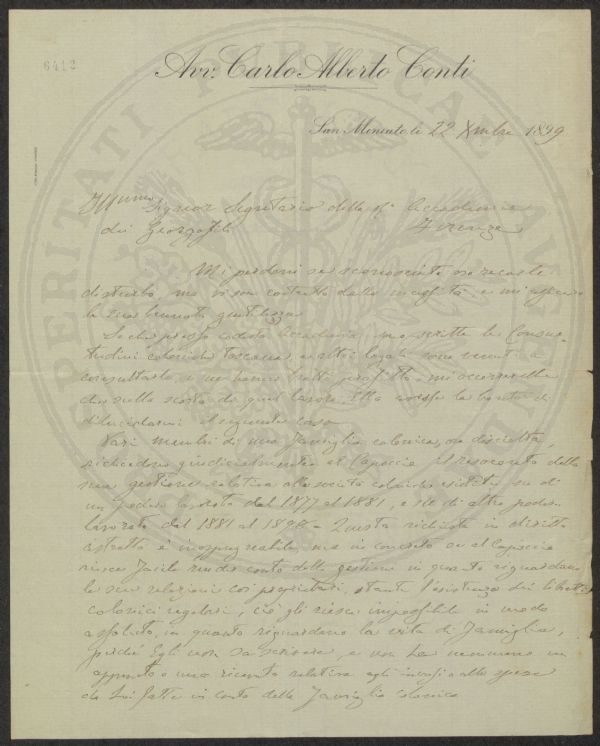 6412
Avv. Carlo Alberto Conti
San Miniato li 22 Xmbre 1899
Ill.mo Signor Segretario della R. Accademia
dei Georgofili Firenze
Mi perdoni se sconosciuto oso recarle
disturbo, ma vi son costretto dalla necessità, e mi affida
la sua bontà gentilezza
So che presso codesta Accademia sono scritte le Consue-
tudini coloniche toscane, e altri legali sono venuti a
consultarle, e ne hanno tratto profitto. mi occorrerebbe
che sulla scorta di quel lavoro, Ella avesse la bontà di
dilucidarmi il seguente caso
Vari membri di una famiglia colonica, ora disciolta,
richiedono giudicialmente al Capoccia il resoconto della
sua gestione relativa alla società colonica esistita su di
un podere lavorato dal 1877 al 1881, e su di altro podere
lavorato dal 1881 al 1898 - Questa richiesta in diritto
astratto è inoppugnabile, ma in concreto se al Capoccia
riesce facile render conto della gestione in quanto riguardano
le sue relazioni coi proprietari, stante l'esistenza dei libretti
colonici regolari, ciò gli riesce impossibile in modo
assoluto, in quanto riguardano la vita di famiglia,
perché Egli non sa scrivere, e non ha nemmeno un
appunto o una ricevuta relativa agli incassi e alle spese
da Lui fatte in conto della famiglia colonica